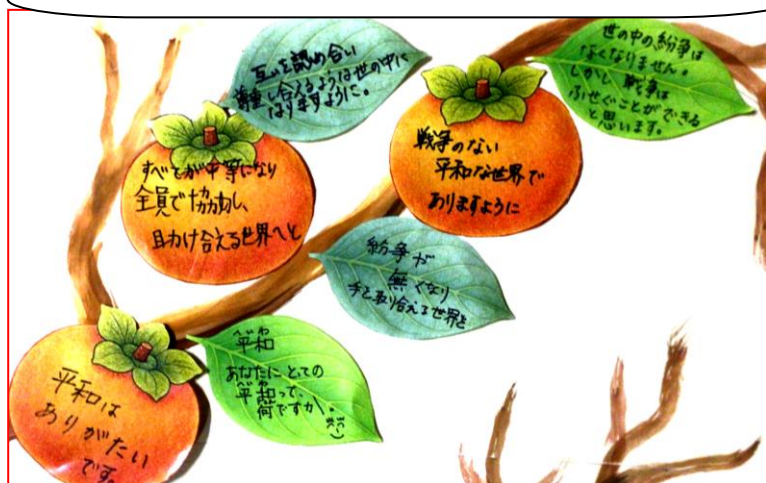 互いを認め合い
尊重し合えるような世の中に
なりますように。
世の中の紛争は
なくなりません。
しかし、戦争は
ふせぐことができる
と思います。
すべてが平等になり
全員で協力し、
助け合える世界へと
戦争のない
平和な世界で
ありますように
紛争が
無くなり
手を取り合える世界を
へいわ
平和
あなたにとっての
へいわ
平和って、
何ですか。
平和は
ありがたい
です。